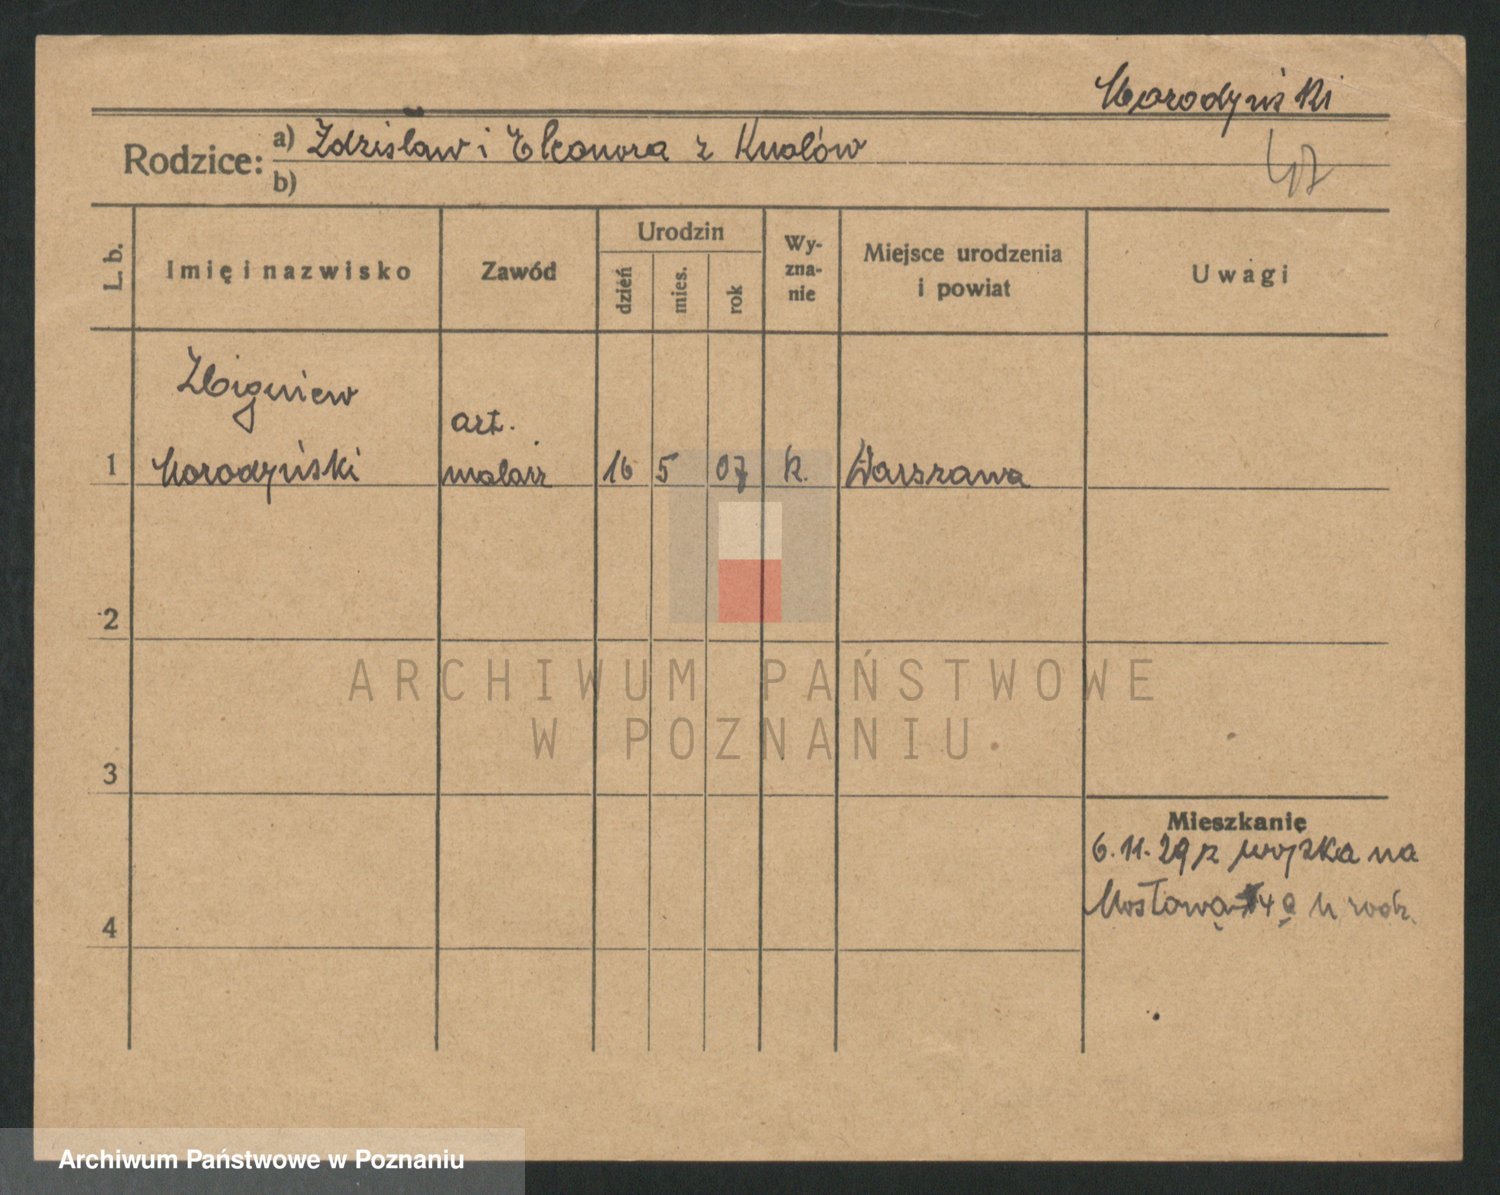 Rodzice: a) Zdzisław i Eleonora z Knolów
b)
L. b.
Imię i nazwisko
Zawód
Urodzin
dzień
mies.
rok
Wy-
zna-
nie
Miejsce urodzenia
i powiat
Uwagi
Zbigniew
art.
1
malarz 16 5 07 k. Warszawa
2
ARCHIWUM PAŃSTWOWE
W POZNANIU
3
Mieszkanie
6.11.29 z wojska na
Mostową 4a u rodz.
4
Archiwum Państwowe w Poznaniu